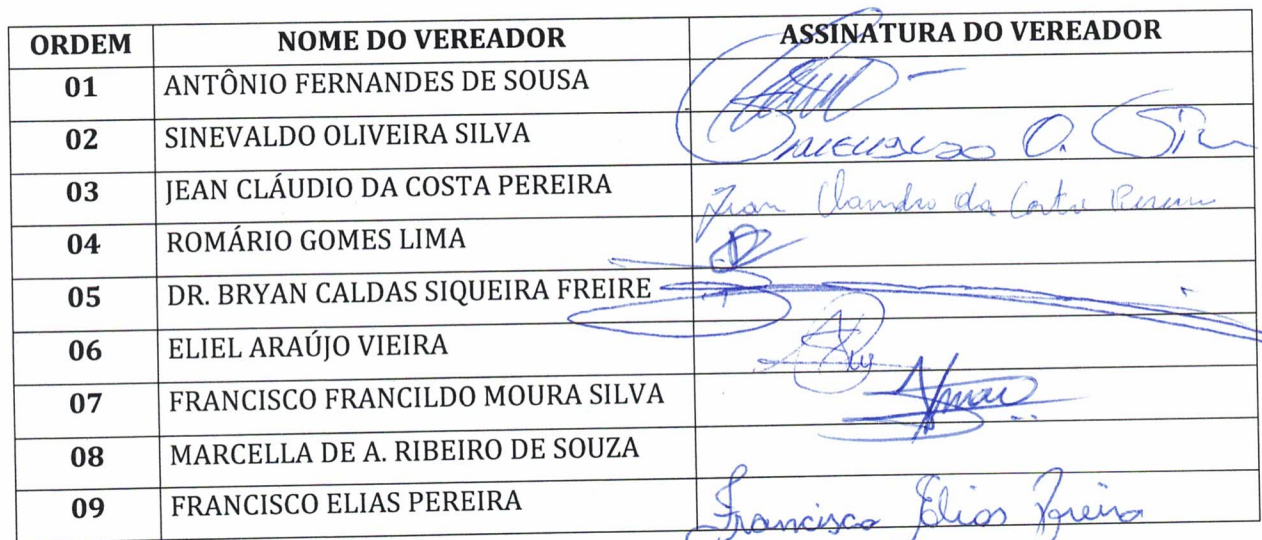 ORDEM NOME DO VEREADOR ASSINATURA DO VEREADOR
01 ANTÔNIO FERNANDES DE SOUSA
02 SINEVALDO OLIVEIRA SILVA
03 JEAN CLÁUDIO DA COSTA PEREIRA Jean Claudio da Costa Pereira
04 ROMÁRIO GOMES LIMA
05 DR. BRYAN CALDAS SIQUEIRA FREIRE
06 ELIEL ARAÚJO VIEIRA
07 FRANCISCO FRANCILDO MOURA SILVA
08 MARCELLA DE A. RIBEIRO DE SOUZA
09 FRANCISCO ELIAS PEREIRA Francisco Elias Pereira